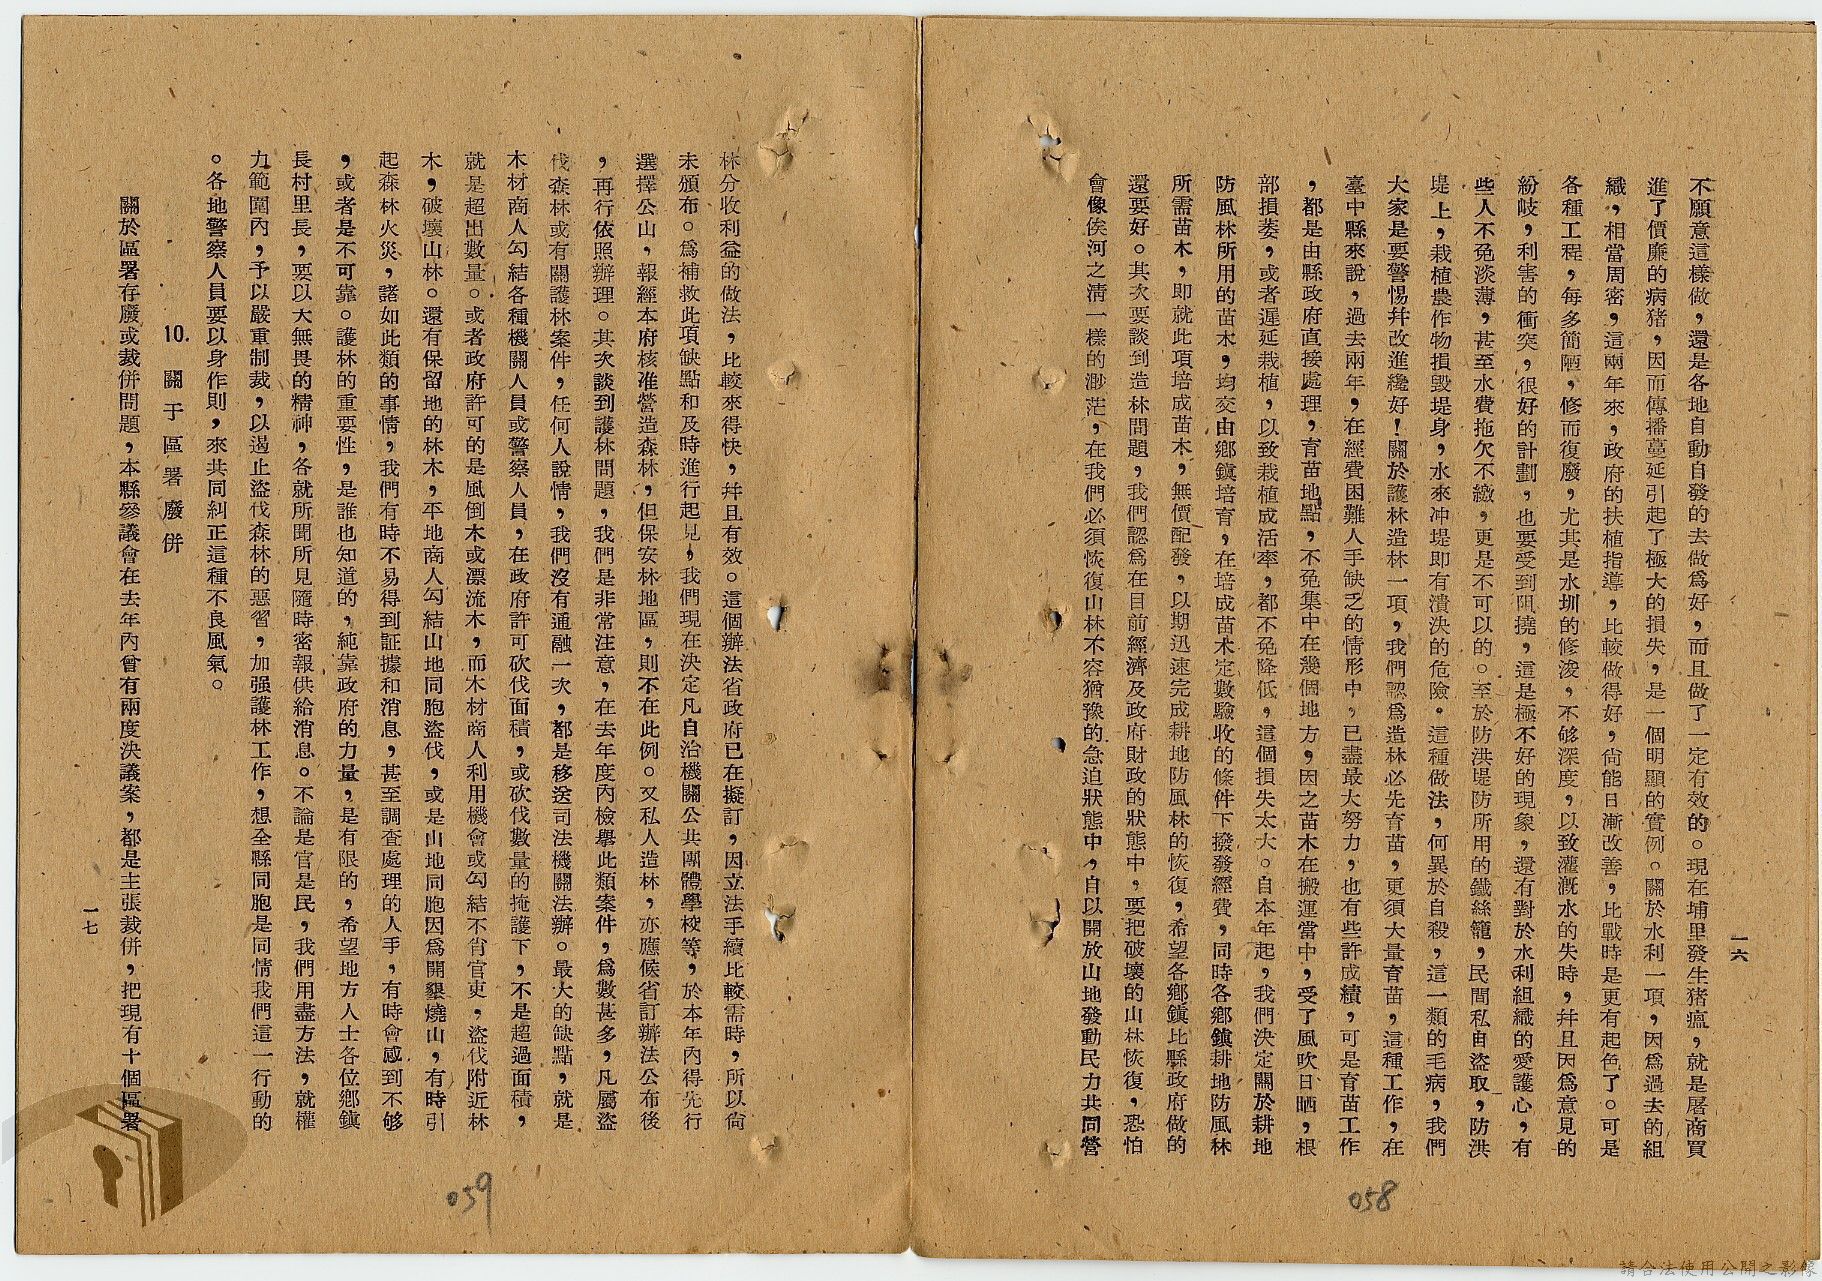 不願意這樣做，還是各地自動自發的去做爲好，而且做了一定有效的。現在埔里發生猪瘟，就是屠商買
進了價廉的病猪，因而傳播蔓延引起了極大的損失，是一個明顯的實例。關於水利一項，因爲過去的組
織，相當周密，這兩年來，政府的扶植指導，比較做得好，尙能日漸改善，比戰時是更有起色了。可是
各種工程，每多簡陋，修而復廢，尤其是水圳的修浚，不够深度，以致灌漑水的失時，幷且因爲意見的
紛岐，利害的衝突，很好的計劃，也要受到阻撓，這是極不好的現象，還有對於水利組織的愛護心，有
些人不免淡薄，甚至水費拖欠不繳，更是不可以的。至於防洪堤防所用的鐵絲籠，民間私自盜取，防洪
堤上，栽植農作物損毀堤身，水來冲堤即有潰決的危險。這種做法，何異於自殺，這一類的毛病，我們
大家是要警惕幷改進纔好！關於護林造林一項，我們認爲造林必先育苗，更須大量育苗，這種工作，在
臺中縣來說，過去兩年，在經費困難人手缺乏的情形中，已盡最大努力，也有些許成績，可是育苗工作
，都是由縣政府直接處理，育苗地點，不免集中在幾個地方，因之苗木在搬運當中，受了風吹日晒，根
部損萎，或者遲延栽植，以致栽植成活率，都不免降低，這個損失太大。自本年起，我們決定關於耕地
防風林所用的苗木，均交由鄉鎭培育，在培成苗木定數驗收的條件下撥發經費，同時各鄉鎭耕地防風林
所需苗木，即就此項培成苗木，無價配發，以期迅速完成耕地防風林的恢復，希望各鄉鎭比縣政府做的
還要好。其次要談到造林問題，我們認爲在目前經濟及政府財政的狀態中，要把破壞的山林恢復，恐怕
會像俟河之淸一樣的渺茫，在我們必須恢復山林不容猶豫的急迫狀態中，自以開放山地發動民力共同營
一六
058
林分收利益的做法，比較來得快，幷且有效。這個辦法省政府已在擬訂，因立法手續比較需時，所以尙
未頒布。爲補救此項缺點和及時進行起見，我們現在決定凡自治機關公共團體學校等，於本年內得先行
選擇公山，報經本府核准營造森林，但保安林地區，則不在此例。又私人造林，亦應候省訂辦法公布後
，再行依照辦理。其次談到護林問題，我們是非常注意，在去年度內檢舉此類案件，爲數甚多，凡屬盜
伐森林或有關護林案件，任何人說情，我們沒有通融一次，都是移送司法機關法辦。最大的缺點，就是
木材商人勾結各種機關人員或警察人員，在政府許可砍伐面積，或砍伐數量的掩護下，不是超過面積，
就是超出數量。或者政府許可的是風倒木或漂流木，而木材商人利用機會或勾結不肖官吏，盜伐附近林
木，破壞山林。還有保留地的林木，平地商人勾結山地同胞盜伐，或是山地同胞因爲開墾燒山，有時引
起森林火災，諸如此類的事情，我們有時不易得到証據和消息，甚至調查處理的人手，有時會感到不够
，或者是不可靠。護林的重要性，是誰也知道的，純靠政府的力量，是有限的，希望地方人士各位鄉鎭
長村里長，要以大無畏的精神，各就所聞所見隨時密報供給消息。不論是官是民，我們用盡方法，就權
力範圍內，予以嚴重制裁，以遏止盜伐森林的惡習，加强護林工作，想全縣同胞是同情我們這一行動的
。各地警察人員要以身作則，來共同糾正這種不良風氣。
10. 關于區署廢併
關於區署存廢或裁併問題，本縣參議會在去年內曾有兩度決議案，都是主張裁併，把現有十個區署
一七
059
請合法使用公開之影像